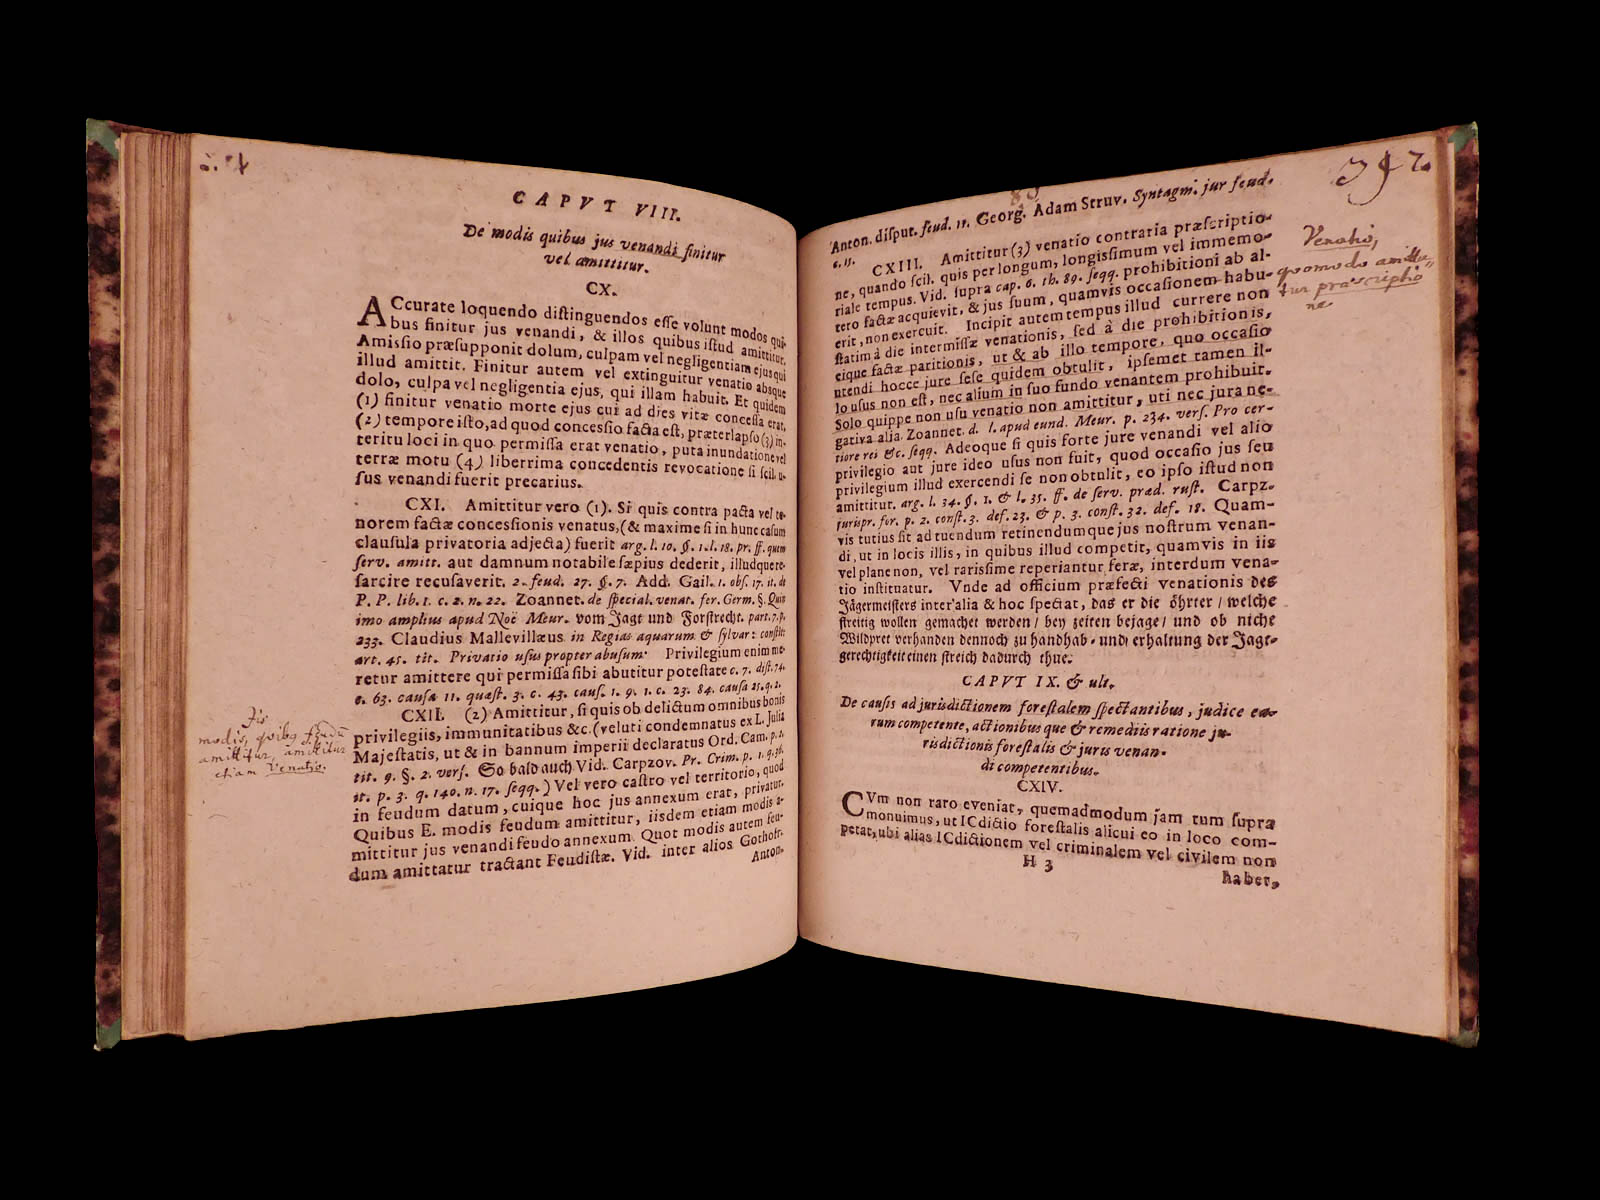 CAPVT VIII.
De modis quibus jus venandi finitur
vel amittitur.
CX.
ACcurate loquendo diſtinguendos eſſe volunt modos qui-
bus finitur jus venandi, & illos quibus iſtud amittitur.
Amiſsio præſupponit dolum, culpam vel negligentiam ejus qui
illud amittit. Finitur autem vel extinguitur venatio absque
dolo, culpa vel negligentia ejus, qui illam habuit. Et quidem
(1) finitur venatio morte ejus cui ad dies vitæ conceſſa erat,
(2) tempore iſto, ad quod conceſsio facta eſt, præterlapſo (3) in-
teritu loci in quo permiſſa erat venatio, puta inundatione vel
terræ motu (4) liberrima concedentis revocatione ſi ſcil. u-
ſus venandi fuerit precarius.
CXI. Amittitur vero (1). Si quis contra pacta vel te-
norem factæ conceſsionis venatus, (& maxime ſi in hunc caſum
clauſula privatoria adjecta) fuerit arg. l. 10. §. 1. l. 18. pr. ff. quem
ſerv. amitt. aut damnum notabile ſæpius dederit, illudque re-
ſarcire recuſaverit. 2. feud. 27. §. 7. Add. Gail. 1. obſ. 17. it. de
P. P. lib. 1. c. 2. n. 22. Zoannet. de ſpecial. venat. fer. Germ. §. Quin
imo amplius apud Noë Meur. vom Jagt und Forſtrecht. part. 7. p.
233. Claudius Mallevillæus in Regias aquarum & ſylvar: conſtit:
art. 45. tit. Privatio uſus propter abuſum: Privilegium enim me-
retur amittere qui permiſſa ſibi abutitur poteſtate c. 7. diſt. 74.
c. 63. cauſa 11. quæſt. 3. c. 43. cauſ. 1. q. 1. c. 23. 84. cauſa 25. q. 2.
CXII. (2) Amittitur, ſi quis ob delictum omnibus bonis
privilegiis, immunitatibus &c. (veluti condemnatus ex L. Julia
Majeſtatis, ut & in bannum imperii declaratus Ord. Cam. p. 2.
tit. 9. §. 2. verſ. So bald auch Vid. Carpzov. Pr. Crim. p. 1. q. 36.
it. p. 3. q. 140. n. 17. ſeqq.) Vel vero caſtro vel territorio, quod
in feudum datum, cuique hoc jus annexum erat, privatur.
Quibus E. modis feudum amittitur, iisdem etiam modis a-
mittitur jus venandi feudo annexum. Quot modis autem feu-
dum amittatur tractant Feudiſtæ. Vid. inter alios Gothofr.
Anton.
modis, quibꝰ feudū
amittitur, amittitur
etiam Venatio.
Anton. diſput. feud. 11. Georg. Adam Struv. Syntagm. jur feud.
c. 15.
CXIII. Amittitur (3) venatio contraria præſcriptio-
ne, quando ſcil. quis per longum, longiſsimum vel immemo-
riale tempus. Vid. ſupra cap. 6. th. 89. ſeqq. prohibitioni ab al-
tero factæ acquievit, & jus ſuum, quamvis occaſionem habu-
erit, non exercuit. Incipit autem tempus illud currere non
ſtatim à die intermiſſæ venationis, ſed à die prohibitionis,
eique factæ paritionis, ut & ab illo tempore, quo occaſio
utendi hocce jure ſeſe quidem obtulit, ipſemet tamen il-
lo uſus non eſt, nec alium in ſuo fundo venantem prohibuit.
Solo quippe non uſu venatio non amittitur, uti nec jura ne-
gativa alia Zoannet. d. l. apud eund. Meur. p. 234. verſ. Pro cer-
tiore rei &c. ſeqq. Adeoque ſi quis forte jure venandi vel alio
privilegio aut jure ideo uſus non fuit, quod occaſio jus ſeu
privilegium illud exercendi ſe non obtulit, eo ipſo iſtud non
amittitur. arg. l. 34. §. 1. & l. 35. ff. de ſerv. præd. ruſt. Carpz-
jurispr. for. p. 2. conſt. 3. def. 23. & p. 3. conſt. 32. def. 18. Quam-
vis tutius ſit ad tuendum retinendumque jus noſtrum venan-
di, ut in locis illis, in quibus illud competit, quamvis in iis
vel plane non, vel rariſsime reperiantur feræ, interdum vena-
tio inſtituatur. Vnde ad officium præfecti venationis des
Jägermeiſters inter alia & hoc ſpectat, das er die öhrter / welche
ſtreitig wollen gemachet werden / bey zeiten bejage / und ob niche
Wildpret verhanden dennoch zu handhab- und erhaltung der Jagt-
gerechtigkeit einen ſtreich dadurch thue.
CAPVT IX. & ult.
De cauſis ad jurisdictionem foreſtalem ſpectantibus, judice ea-
rum competente, actionibus que & remediis ratione ju-
risdictionis foreſtalis & juris venan-
di competentibus.
CXIV.
CVm non raro eveniat, quemadmodum jam tum ſupra
monuimus, ut ICdictio foreſtalis alicui eo in loco com-
petat, ubi alias ICdictionem vel criminalem vel civilem non
H 3
haber,
Venatio,
quomodo amitta-
tur præscriptio
ne